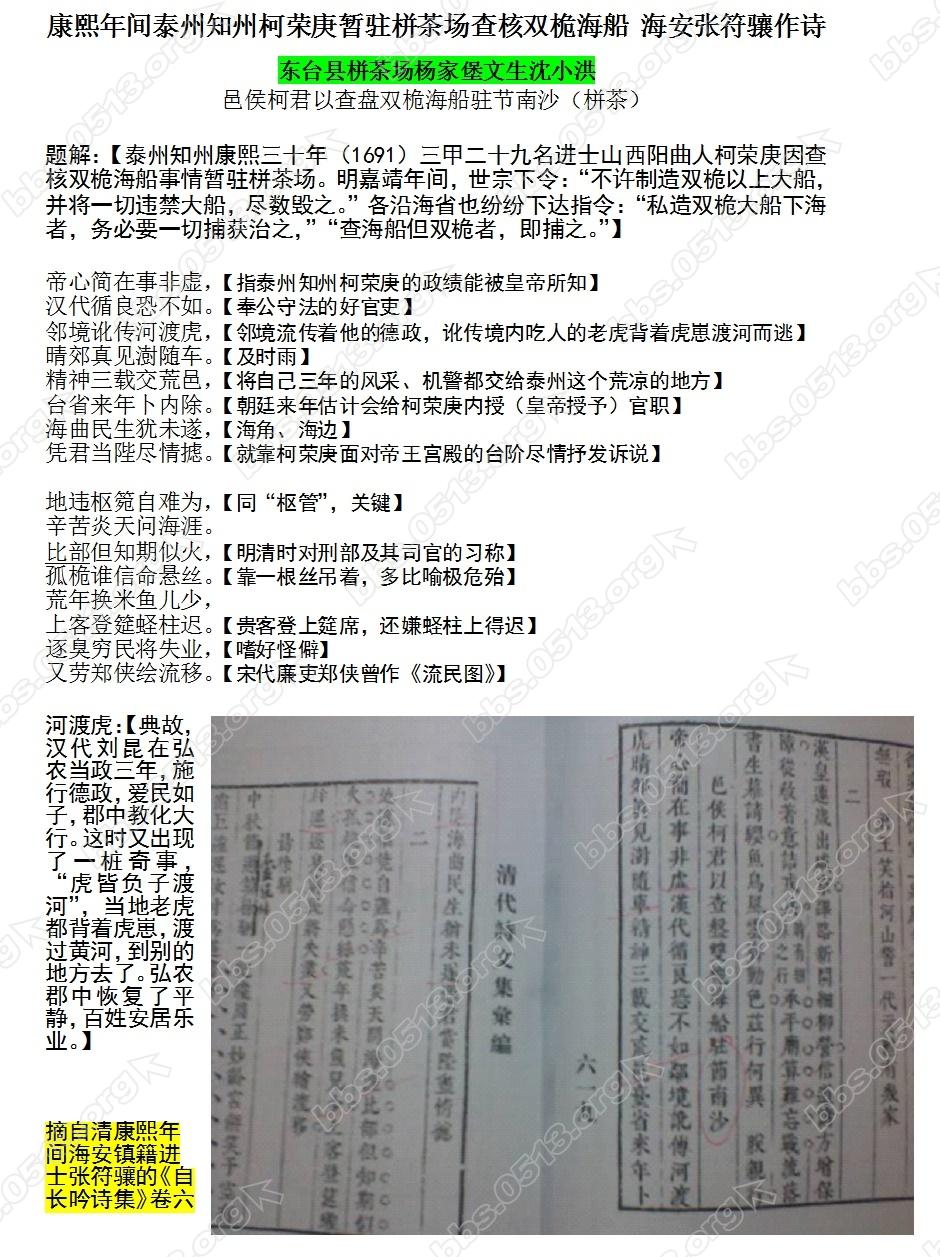 康熙年间泰州知州柯荣庚暂驻栟茶场查核双桅海船 海安张符骧作诗
东台县栟茶场杨家堡文生沈小洪
邑侯柯君以查盘双桅海船驻节南沙（栟茶）
题解：【泰州知州康熙三十年（1691）三甲二十九名进士山西阳曲人柯荣庚因查
核双桅海船事情暂驻栟茶场。明嘉靖年间，世宗下令：“不许制造双桅以上大船，
并将一切违禁大船，尽数毁之。”各沿海省也纷纷下达指令：“私造双桅大船下海
者，务必要一切捕获治之，”“查海船但双桅者，即捕之。”】
帝心简在事非虚，【指泰州知州柯荣庚的政绩能被皇帝所知】
汉代循良恐不如。【奉公守法的好官吏】
邻境讹传河渡虎，【邻境流传着他的德政，讹传境内吃人的老虎背着虎崽渡河而逃】
晴郊真见澍随车。【及时雨】
精神三载交荒邑，【将自己三年的风采、机警都交给泰州这个荒凉的地方】
台省来年卜内除。【朝廷来年估计会给柯荣庚内授（皇帝授予）官职】
海曲民生犹未遂，【海角、海边】
凭君当陛尽情摅。【就靠柯荣庚面对帝王宫殿的台阶尽情抒发诉说】
地违枢筦自难为，【同“枢管”，关键】
辛苦炎天问海涯。
比部但知期似火，【明清时对刑部及其司官的习称】
孤桅谁信命悬丝。【靠一根丝吊着，多比喻极危殆】
荒年换米鱼儿少，
上客登筵蛏柱迟。【贵客登上筵席，还嫌蛏柱上得迟】
逐臭穷民将失业，【嗜好怪僻】
又劳郑侠绘流移。【宋代廉吏郑侠曾作《流民图》】
河渡虎：【典故，
汉代刘昆在弘
农当政三年，施
行德政，爱民如
子，郡中教化大
行。这时又出现
了一桩奇事，
“虎皆负子渡
河”，当地老虎
都背着虎崽，渡
过黄河，到别的
地方去了。弘农
郡中恢复了平
静，百姓安居乐
业。】
摘自清康熙年
间海安镇籍进
士张符骧的《自
长吟诗集》卷六
邑侯柯君以查盤雙桅海船駐節南沙
帝心簡在事非虛漢代循良恐不如鄰境訛傳河渡
虎晴郊真見澍隨車精神三載交荒邑臺省來年卜
六一九
清代詩文集彙編
內除海曲民生猶未遂憑君當陛盡情攄
二
bbs.0513.org